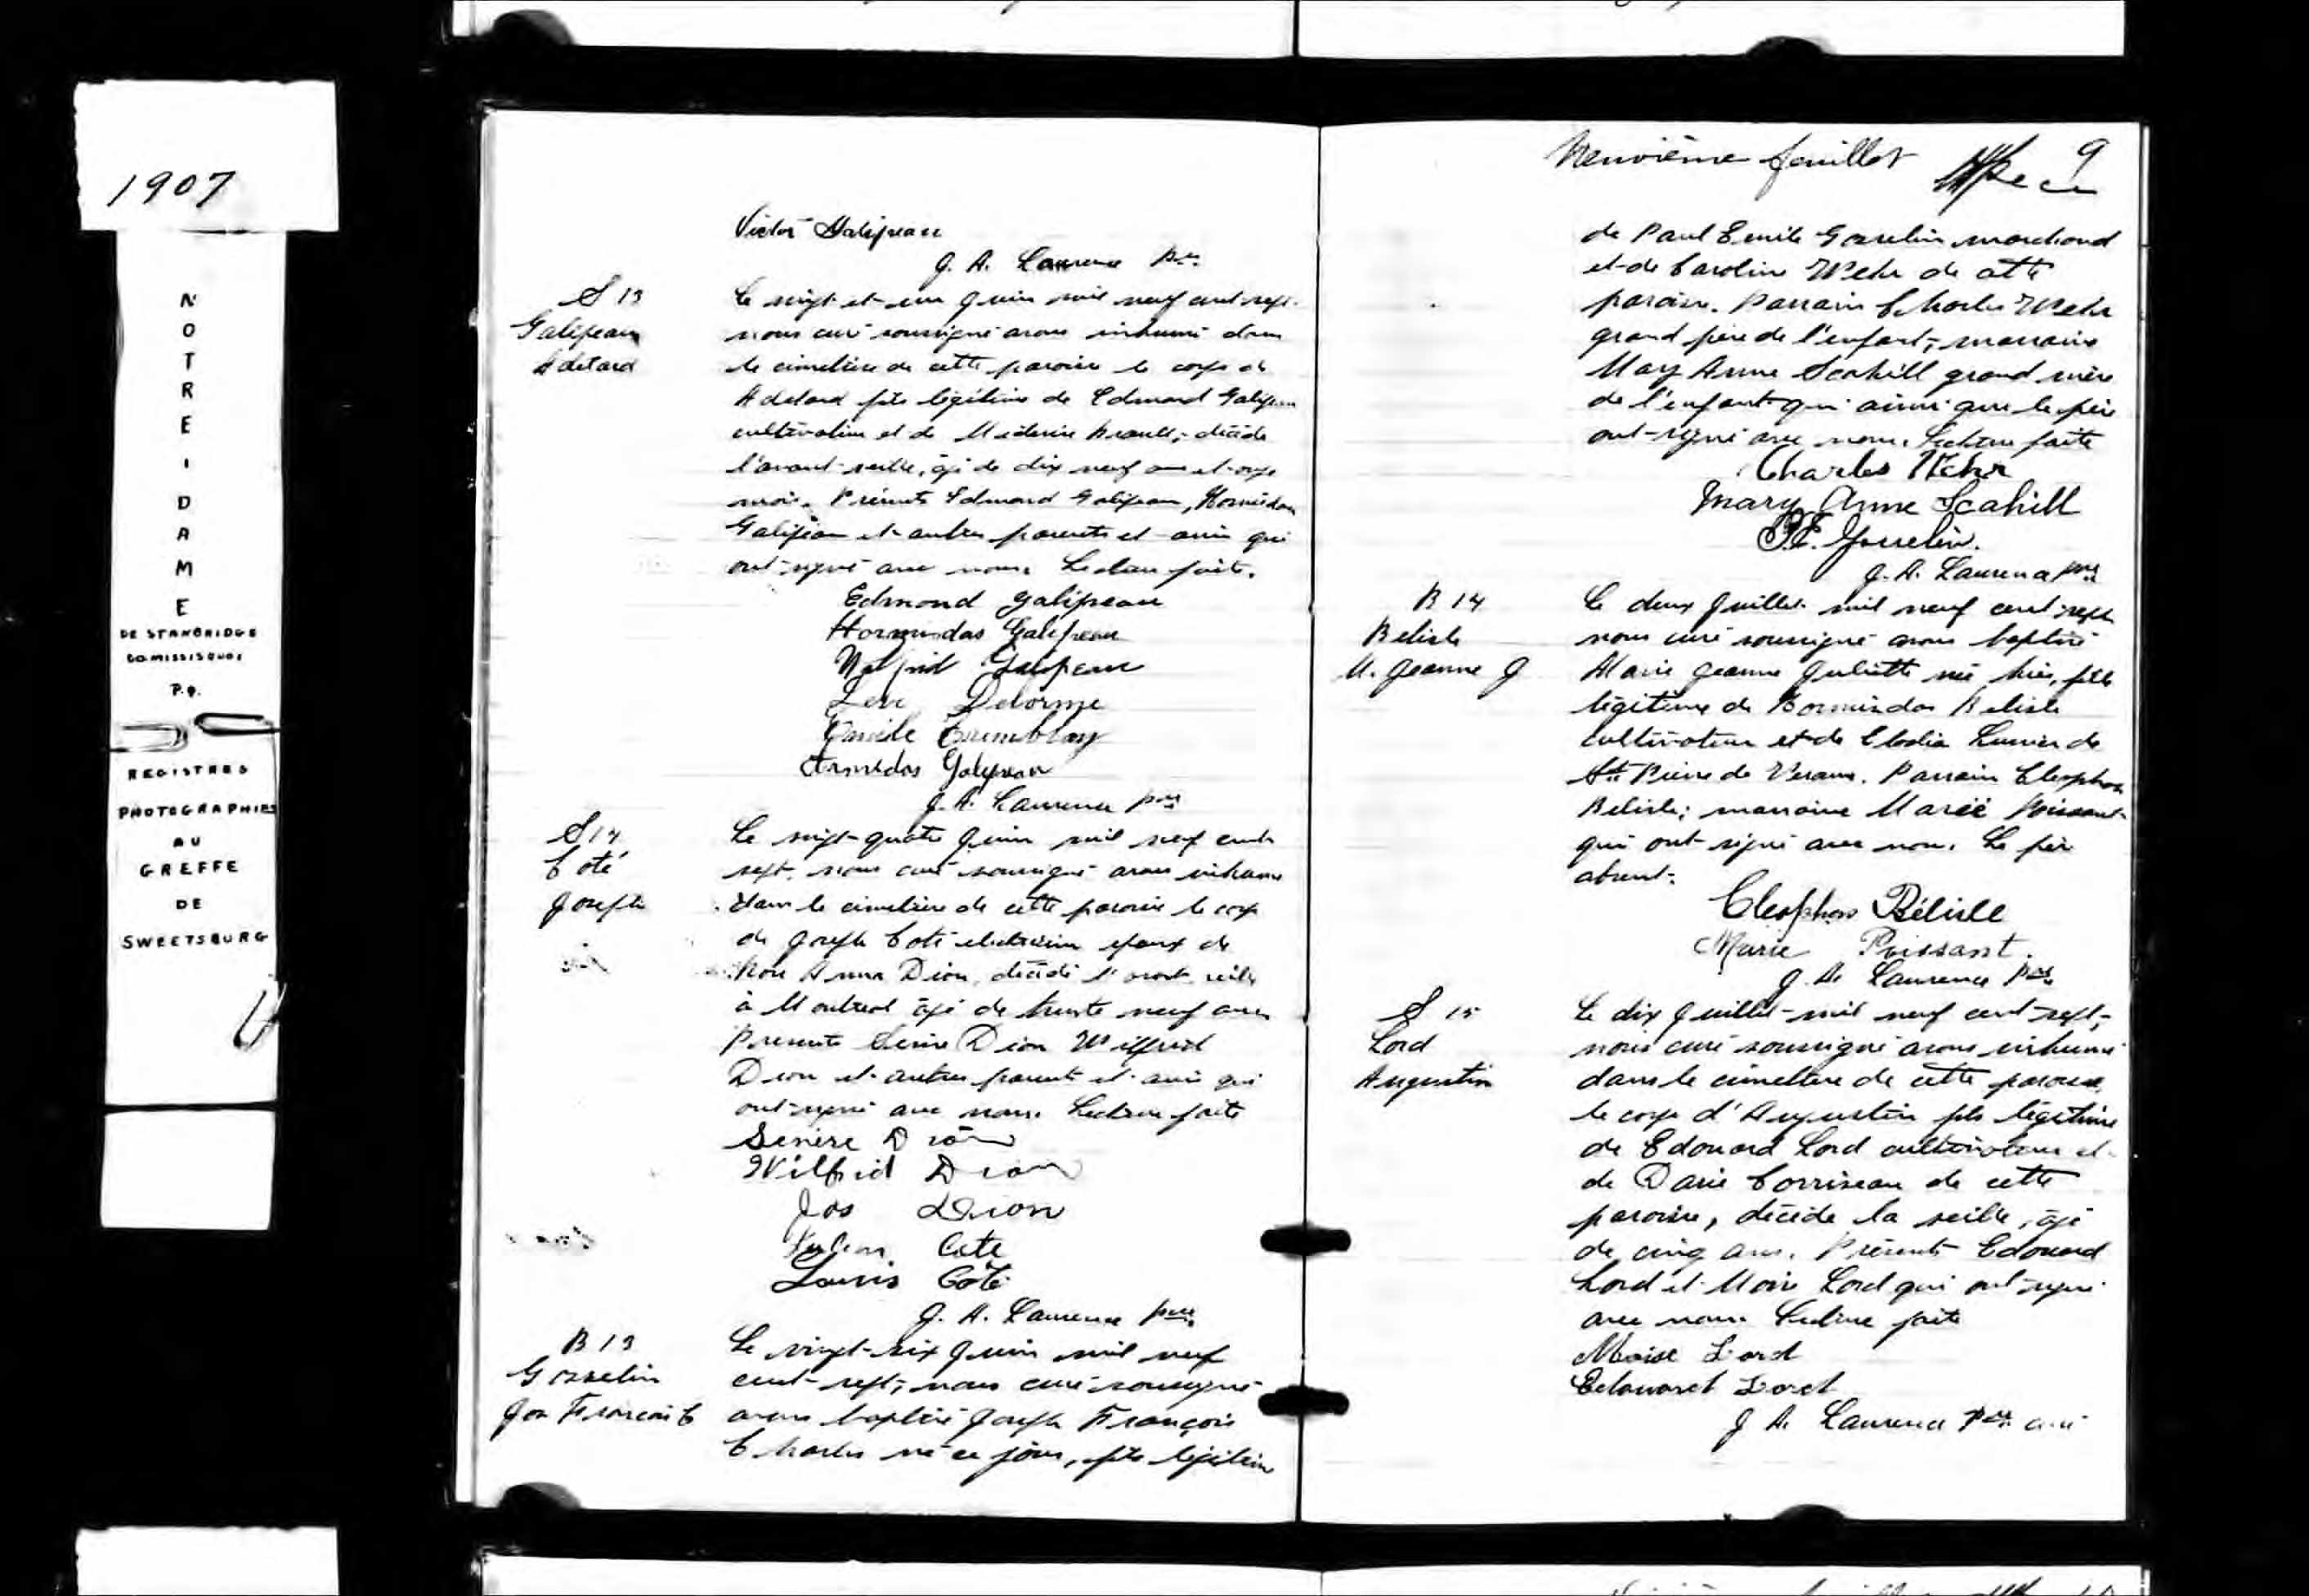 1907
NOTRE DAME
DE STANBRIDGE
CO. MISSISQUOI
P.Q.
REGISTRES
PHOTOGRAPHIES
AU
GREFFE
DE
SWEETSBURG
Victor Galipeau
J. A. Laurence Ptre
S 13
Galipeau
Adelard
Le vingt et un Juin mil neuf cent sept
nous curé soussigné avons inhumé dans
le cimetière de cette paroisse le corps de
Adelard fils légitime de Edmond Galipeau
cultivateur et de décédé
l'avant-veille, âgé de dix neuf ans et onze
mois. Présents Edmond Galipeau, Hormidas
Galipeau et autres parents et amis qui
ont signé avec nous. Lecture faite.
Edmond Galipeau
Hormisdas Galipeau
Wilfrid Galipeau
Delorme
Emile Tremblay
Armédas Galipeau
J. A. Laurence ptre
S 14
Coté
Joseph
Le vingt-quatre Juin mil neuf cent
sept, nous curé soussigné avons inhumé
dans le cimetière de cette paroisse le corps
de Joseph Coté electricien époux de
Anna Dion, décédé l'avant veille
à Montreal âgé de trente neuf ans
Presents Dion Wilfrid
Dion et autres parents et amis qui
ont signé avec nous. Lecture faite
Dion
Wilfrid Dion
Jos Dion
Cote
Louis Coté
J. A. Laurence ptre
B 13
Gosselin
Jos François C
Le vingt-six Juin mil neuf
cent-sept, nous curé soussigné
avons baptisé Joseph François
Charles né ce jour, fils légitime
Neuvième feuillet 9
de Paul Emile Gosselin marchand
et de Caroline Wehr de cette
paroisse. Parrain Charles Wehr
grand père de l'enfant, marraine
Mary Anne Scahill grand mère
de l'enfant qui ainsi que le père
ont signé avec nous. Lecture faite
Charles Wehr
Mary Anne Scahill
P.E. Gosselin.
J. A. Laurence ptre
B 14
Belisle
M. Jeanne J
Le deux Juillet mil neuf cent sept
nous curé soussigné avons baptisé
Marie Jeanne Juliette née hier, fille
légitime de Hormisdas Belisle
cultivateur et de de
St Pierre de Verone. Parrain Cleophas
Belisle; marraine Marie Poissant
qui ont signé avec nous. Le père
absent.
Cleophas Bélisle
Marie Poissant.
J. A. Laurence ptre
S 15
Lord
Augustin
Le dix Juillet mil neuf cent-sept,
nous curé soussigné avons inhumé
dans le cimetière de cette paroisse,
le corps d'Augustin fils légitime
de Edouard Lord cultivateur et
de Corriveau de cette
paroisse, décédé la veille, âgé
de cinq ans. Présents Edouard
Lord et Moise Lord qui ont signé
avec nous. Lecture faite
Moise Lord
Edouard Lord
J A. Laurence Ptre curé